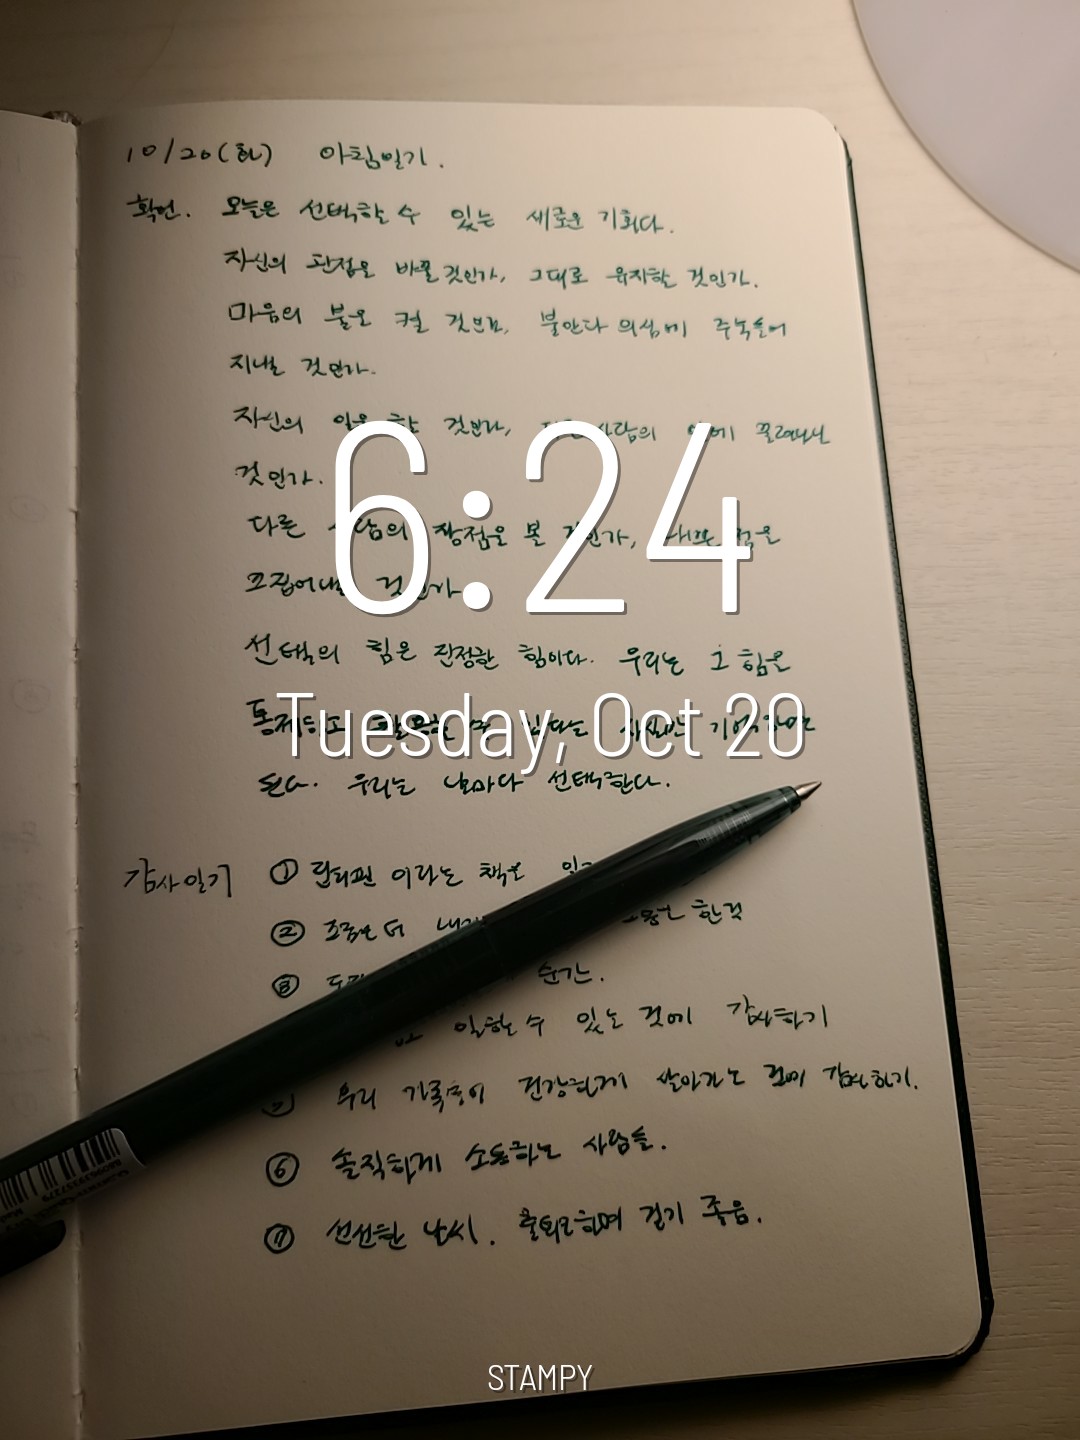 10/20(화) 아침일기.
확언. 오늘은 선택할 수 있는 새로운 기회다.
자신의 관점을 바꿀 것인가, 그대로 유지할 것인가.
마음의 불을 켤 것인가, 불안과 의심에 주눅들어
지낼 것인가.
자신의 일을 할 것인가, 사람의 일에 끌려다닐
것인가.
6:24
다른 사람의 장점을 볼 것인가, 나쁜 점을
끄집어낼 것인가
선택의 힘은 진정한 힘이다. 우리는 그 힘을
Tuesday, Oct 20
있다는 사실만 기억하면
된다. 우리는 날마다 선택한다.
감사일기 ① 이라는 책을
② 조금은 더 한것
③ 순간.
일할 수 있는 것에 감사하기
우리 가족들이 건강하게 살아가는 것에 감사하기.
⑥ 솔직하게 소통하는 사람들.
⑦ 선선한 날씨. 출퇴근하며 걷기 좋음.
STAMPY